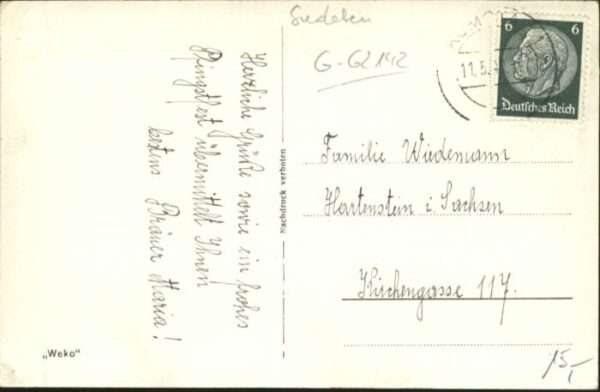 Siedeln
G-G2142
11.5.
6 6
Deutsches Reich
Herzliche Grüße sowie ein frohes
Pfingstfest übermittelt Ihnen
bestens Bräuer Maria!
Nachdruck verboten
Familie Wiedemann
Hartenstein i. Sachsen
Kirchengasse 117.
„Weko"
15,-